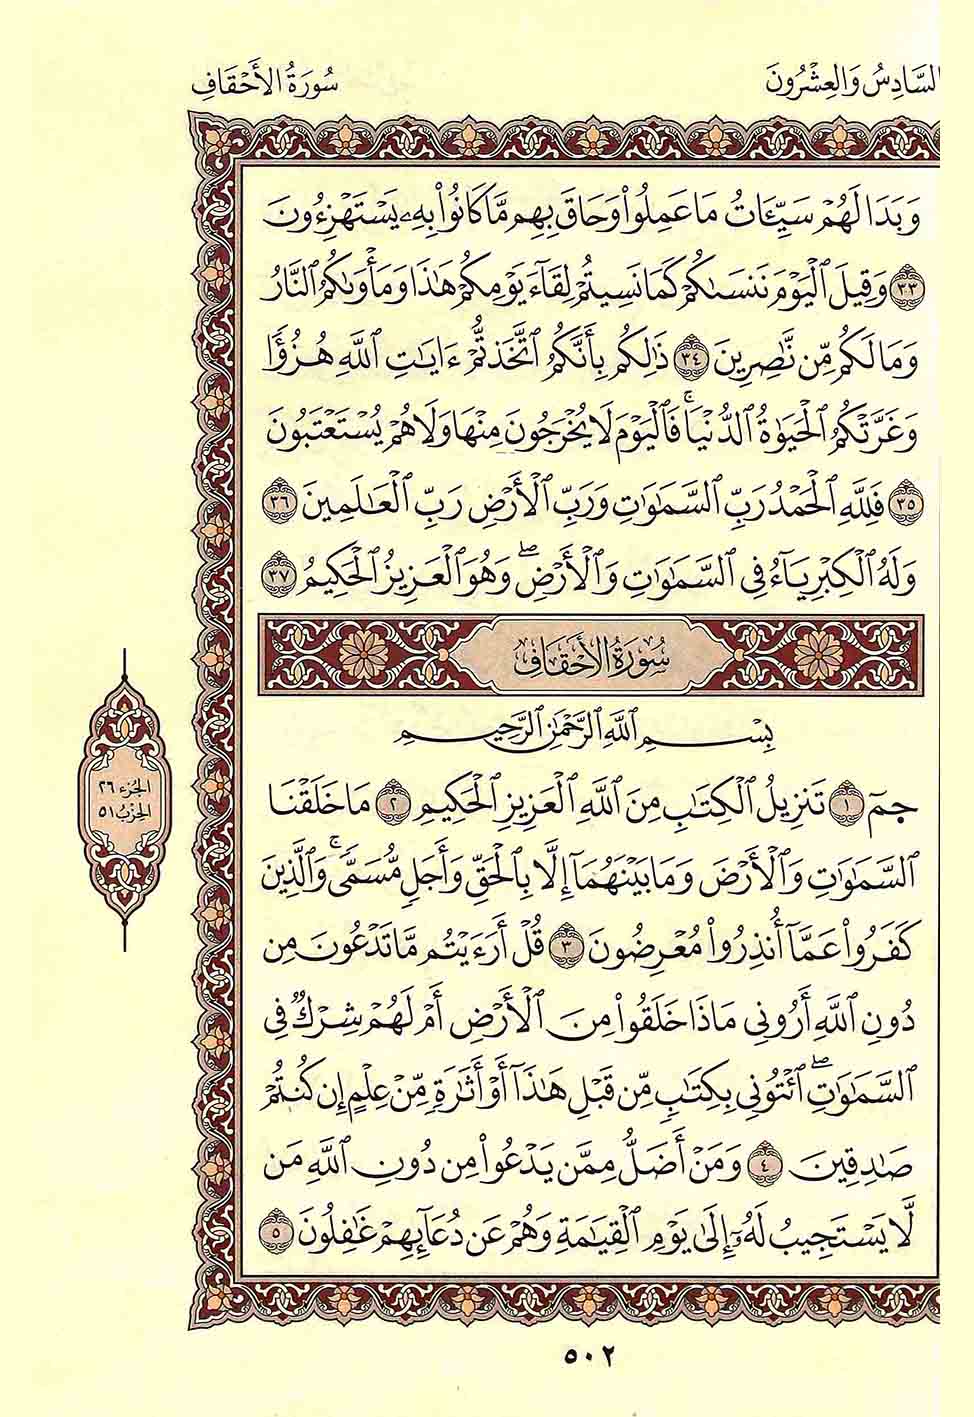 السَّادِسُ وَالعِشْرُونَ
سُورَةُ الأَحْقَافِ
وَبَدَا لَهُمْ سَيِّـَٔاتُ مَا عَمِلُوا۟ وَحَاقَ بِهِم مَّا كَانُوا۟ بِهِۦ يَسْتَهْزِءُونَ
٣٣ وَقِيلَ ٱلْيَوْمَ نَنسَىٰكُمْ كَمَا نَسِيتُمْ لِقَآءَ يَوْمِكُمْ هَـٰذَا وَمَأْوَىٰكُمُ ٱلنَّارُ
وَمَا لَكُم مِّن نَّـٰصِرِينَ ٣٤ ذَٰلِكُم بِأَنَّكُمُ ٱتَّخَذْتُمْ ءَايَـٰتِ ٱللَّهِ هُزُوًا
وَغَرَّتْكُمُ ٱلْحَيَوٰةُ ٱلدُّنْيَا ۚ فَٱلْيَوْمَ لَا يُخْرَجُونَ مِنْهَا وَلَا هُمْ يُسْتَعْتَبُونَ
٣٥ فَلِلَّهِ ٱلْحَمْدُ رَبِّ ٱلسَّمَـٰوَٰتِ وَرَبِّ ٱلْأَرْضِ رَبِّ ٱلْعَـٰلَمِينَ ٣٦
وَلَهُ ٱلْكِبْرِيَآءُ فِى ٱلسَّمَـٰوَٰتِ وَٱلْأَرْضِ ۖ وَهُوَ ٱلْعَزِيزُ ٱلْحَكِيمُ ٣٧
سُورَةُ الأَحْقَافِ
بِسْمِ ٱللَّهِ ٱلرَّحْمَـٰنِ ٱلرَّحِيمِ
حمٓ ١ تَنزِيلُ ٱلْكِتَـٰبِ مِنَ ٱللَّهِ ٱلْعَزِيزِ ٱلْحَكِيمِ ٢ مَا خَلَقْنَا
ٱلسَّمَـٰوَٰتِ وَٱلْأَرْضَ وَمَا بَيْنَهُمَآ إِلَّا بِٱلْحَقِّ وَأَجَلٍ مُّسَمًّى ۚ وَٱلَّذِينَ
كَفَرُوا۟ عَمَّآ أُنذِرُوا۟ مُعْرِضُونَ ٣ قُلْ أَرَءَيْتُم مَّا تَدْعُونَ مِن
دُونِ ٱللَّهِ أَرُونِى مَاذَا خَلَقُوا۟ مِنَ ٱلْأَرْضِ أَمْ لَهُمْ شِرْكٌ فِى
ٱلسَّمَـٰوَٰتِ ۖ ٱئْتُونِى بِكِتَـٰبٍ مِّن قَبْلِ هَـٰذَآ أَوْ أَثَـٰرَةٍ مِّنْ عِلْمٍ إِن كُنتُمْ
صَـٰدِقِينَ ٤ وَمَنْ أَضَلُّ مِمَّن يَدْعُوا۟ مِن دُونِ ٱللَّهِ مَن
لَّا يَسْتَجِيبُ لَهُۥٓ إِلَىٰ يَوْمِ ٱلْقِيَـٰمَةِ وَهُمْ عَن دُعَآئِهِمْ غَـٰفِلُونَ ٥
الجُزء ٢٦
الحِزْبُ ٥١
٥٠٢